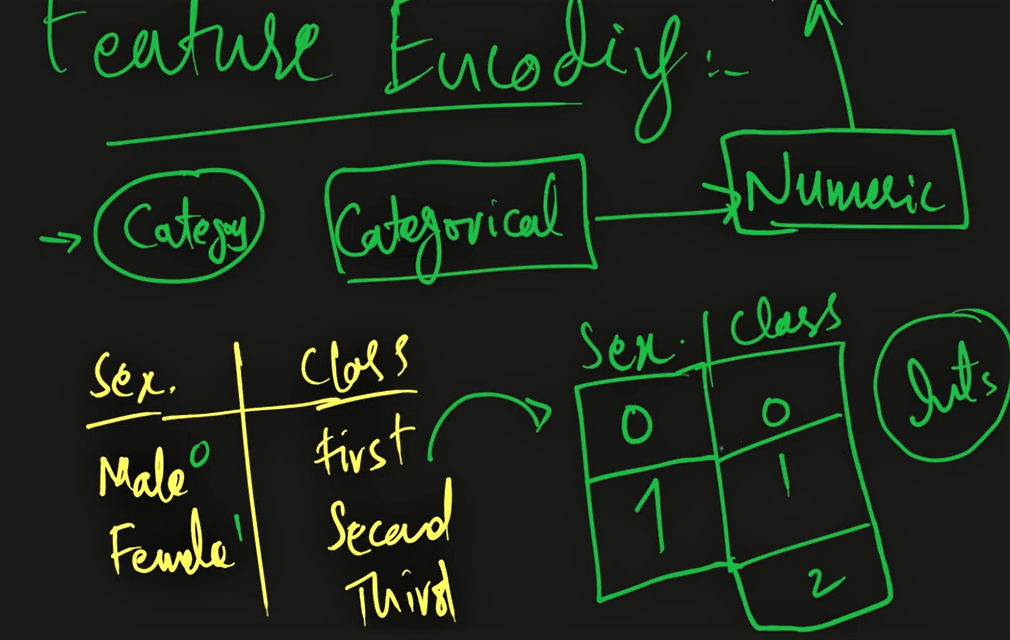 Feature Encodiy :-
Category Categorical Numeric
Sex. Class
Male 0 First
Female 1 Second
Third
Sex. Class
0 0
1 1
2